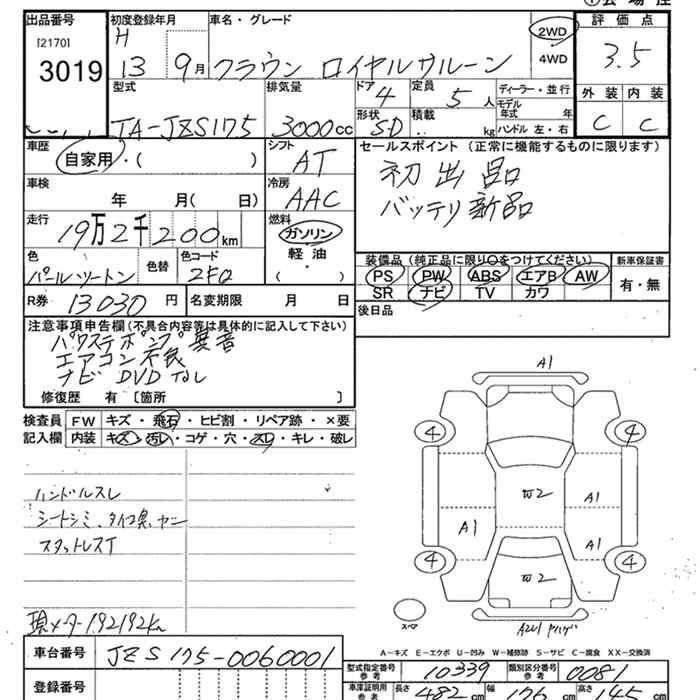 出品番号 初度登録年月 車名・グレード 評価点
[2170] H 2WD
3019 13 9月 クラウン ロイヤルサルーン 4WD 3.5
型式 排気量 ドア 4 定員 5人 ディーラー・並行 外装 内装
モデル年式 年
JA-JZS175 3000cc 形状 SD 積載 kg ハンドル 左・右 C C
車歴 自家用・( ) シフト AT セールスポイント (正常に機能するものに限ります)
車検 年 月( 日) 冷房 AAC 初出品
バッテリ新品
走行 19万2千200km 燃料 ガソリン
軽油
( )
色 パールツートン 色替 色コード 2F0 装備品 (純正品に限り○をつけてください) 新車保証書
PS PW ABS エアB AW 有・無
SR ナビ TV カワ
R券 13030円 名変期限 月 日 後日品
注意事項申告欄(不具合内容等は具体的に記入して下さい)
パワステポンプ異音
エアコン不良
ナビ DVDなし
修復歴 有 〔箇所 〕
検査員 FW キズ・飛石・ヒビ割・リペア跡・×要
記入欄 内装 キズ・汚レ・コゲ・穴・スレ・キレ・破レ
ハンドルスレ
シートシミ、タバコ臭、ヤニ
スタットレスT
現メーター192192km
A1
4 4
W2 A1
A1 A1
4 4
W2
スペア
A-キズ E-エクボ U-凹み W-補修跡 S-サビ C-腐食 XX-交換済
車台番号 JZS175-0060001
型式指定番号 参考 10339 類別区分番号 参考 0081
登録番号 車庫証明用 参考 長さ 482cm 幅 176cm 高さ 145cm